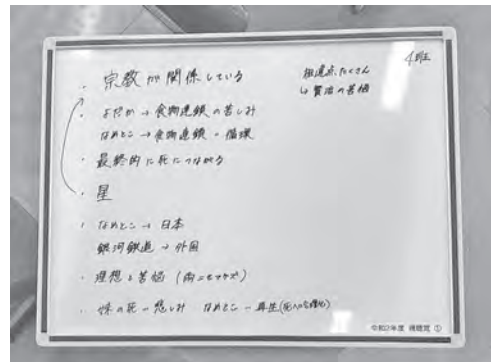 4班
・宗教が関係している
相違点たくさん
↳ 賢治の苦悩
・よだか → 食物連鎖の苦しみ
なめとこ → 食物連鎖 = 循環
・最終的に死につながる
・星
・なめとこ → 日本
銀河鉄道 → 外国
・理想と苦悩 (雨ニモマケズ)
・妹の死 = 悲しみ なめとこ = 再生
令和2年度 視聴覚 ①